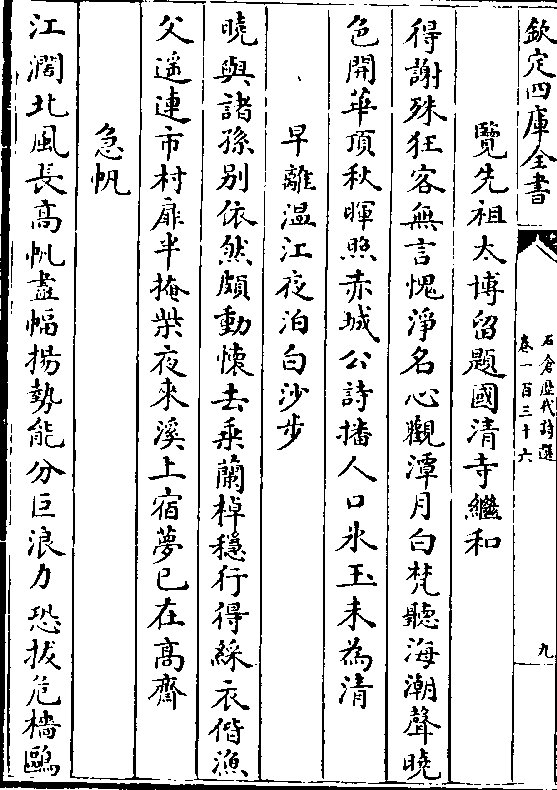 欽定四庫全書
石倉歷代詩選
卷一百三十六
九
覽先祖太博留題國清寺繼和
得謝殊狂客無言愧淨名心觀潭月白梵聽海潮聲曉
色開華頂秋暉照赤城公詩播人口氷玉未為清
早離温江夜泊白沙步
曉與諸孫别依然頗動懷去乗蘭棹穩行得綵衣偕漁
父遥連市村扉半掩柴夜來溪上宿夢已在髙齋
急帆
江濶北風長髙帆盡幅揚勢能分巨浪力恐拔危檣鷗